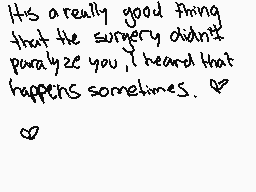 It's a really good thing
that the surgery didn't
paralyze you, I heard that
happens sometimes. ♡
♡